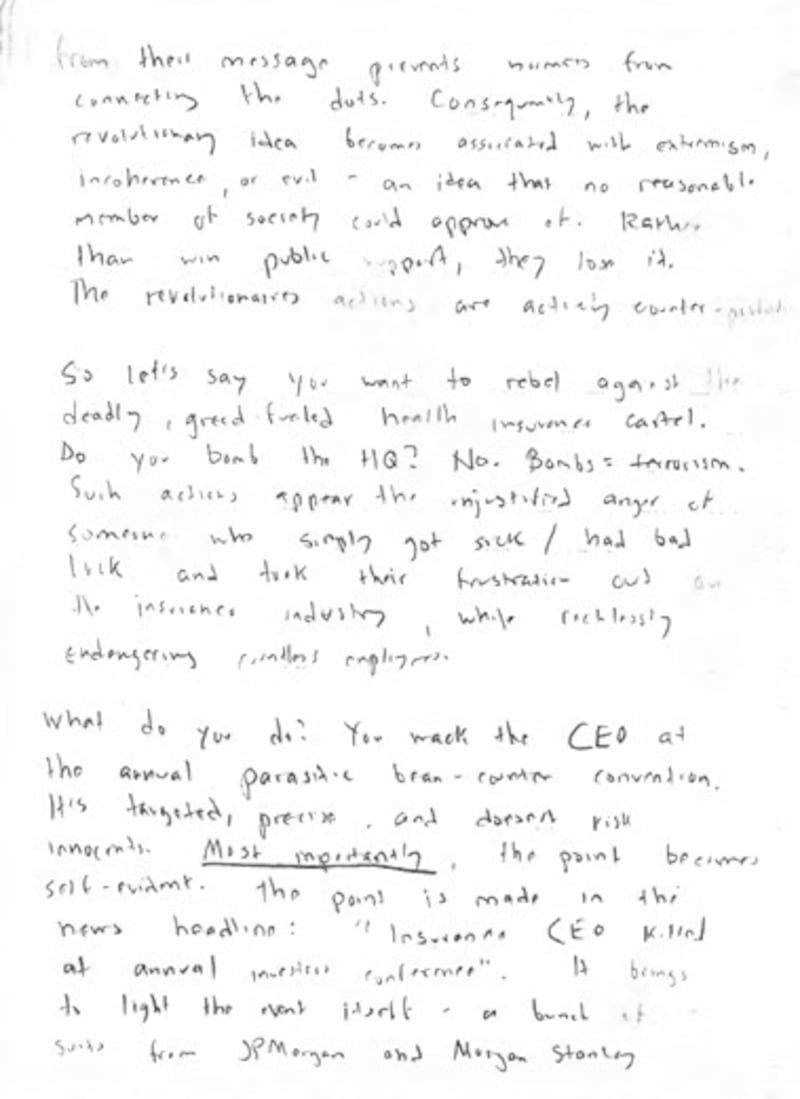 from their message prevents normies from
connecting the dots. Consequently, the
revolutionary idea becomes associated with extremism,
incoherence, or evil - an idea that no reasonable
member of society could approve of. Rather
than win public support, they lose it.
The revolutionaries actions are actively counter-
So let's say you want to rebel against the
deadly, greed fueled health insurance cartel.
Do you bomb the HQ? No. Bombs = terrorism.
Such actions appear the unjustified anger of
someone who simply got sick / had bad
luck and took their frustration out on
the insurance industry, while recklessly
endangering countless employees.
What do you do? You wack the CEO at
the annual parasitic bean-counter convention.
It's targeted, precise, and doesn't risk
innocents. Most importantly, the point becomes
self-evident. The point is made in the
news headline: "Insurance CEO killed
at annual investors conference". It brings
to light the event itself - a bunch of
suits from JPMorgan and Morgan Stanley